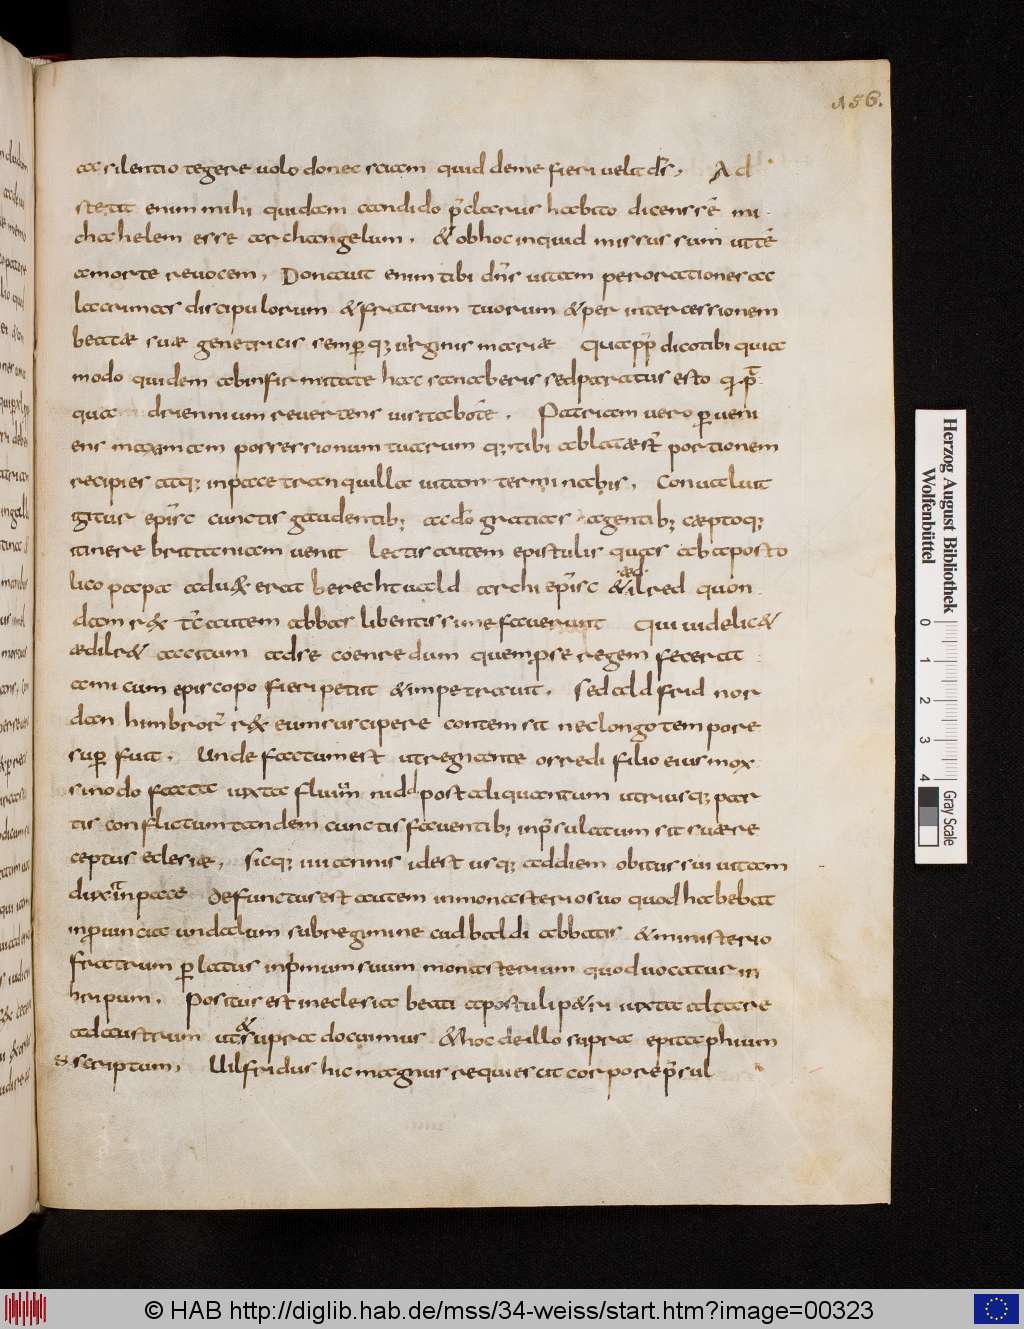 156.
ac silentio tegere uolo donec sciam quid deme fieri uelit dš. Ad
stetit enim mihi quidam candido p̄clarus habito dicens sē mi
chahelem esse archangelum. & obhoc inquid missus sum utte
amorte reuocem. Donauit enim tibi dn̄s uitam perorationes ac
lacrimas discipulorum & fratrum tuorum & per intercessionem
beatæ suæ genetricis semp̱ q; uirginis mariæ quapp̱ dico tibi quia
modo quidem abinfirmitate hac sanaberis sed paratus esto q̱p
qua driennium reuertens uisitabo te. Patriam uero p̱ueni
ens maxamam possessionum tuarum q; tibi ablatæ s̄t portionem
recipies atq; inpace tranquilla uitam terminabis. Conualuit
igitur ep̄isc cunctis gaudentib; ac dō gratias agentib; cæptoq;
itinere brittaniam uenit lectis autem epistulis quas abaposto
lico papa adux& erat berechtuald archi ep̄isc æd
&ilred quon
dam r&x tc̄ autem abbas libentissime fauerunt Qui uidelic&
ædilr& accitum adse coenredum quem p̱se regem fecerat
amicum episcopo fieri petiit & impetrauit. Sed aldfrid nor
dan himbror̄ r&x eum suscipere contemsit nec longo tempore
sup̱ fuit. Unde factum est ut regnante osredi filio eius mox
sinodo facta iuxta fluium nidd post aliquantum utriusq; par
tis conflictum tandem cunctis fauentib; inp̄sulatum sit suæ re
ceptus eclesiæ, sicq; iiii annis id est usq; addiem obitus sui uitam
duxit inpace defunctus est autem inmonasterio suo quod habebat
inprouincia undalum sub regimine cudbaldi abbatis & ministerio
fratrum p̱latus inp̄mum suum monasterium quod uocatur in
hripum. Positus est ineclesia beati apostuli p&ri iuxta altare
adaustrum ut & supra docuimus & hoc deillo supra epitaphium
& scriptum. Uilfridus hic magnus requiescit corpore p̄sul
Herzog August Bibliothek
Wolfenbüttel
0 1 2 3 4
Gray Scale
© HAB http://diglib.hab.de/mss/34-weiss/start.htm?image=00323